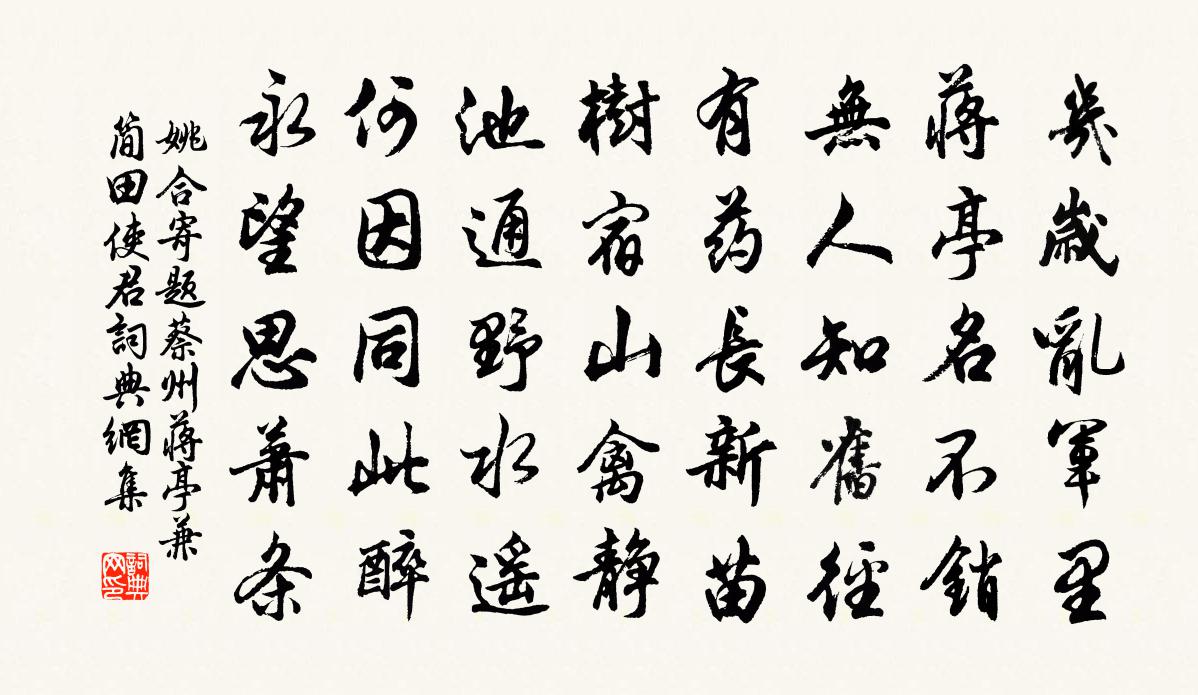 幾歲亂軍里
蔣亭名不銷
無人知舊徑
有药長新苗
樹宿山禽靜
池通野水遥
何因同此醉
永望思蕭条
姚合寄题蔡州蔣亭兼
简田使君詞典網集
詞典
网印